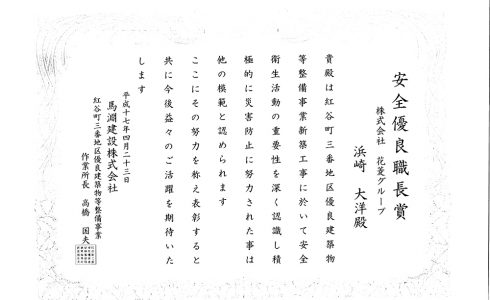 安全優良職長賞
株式会社 花菱グループ
浜崎 大洋殿
貴殿は紅谷町三番地区優良建築物
等整備事業新築工事に於いて安全
衛生活動の重要性を深く認識し積
極的に災害防止に努力された事は
他の模範と認められます
ここにその努力を称え表彰すると
共に今後益々のご活躍を期待いた
します
平成十七年四月二十三日
馬淵建設株式会社
紅谷町三番地区優良建築物等整備事業
作業所長 高橋 国夫